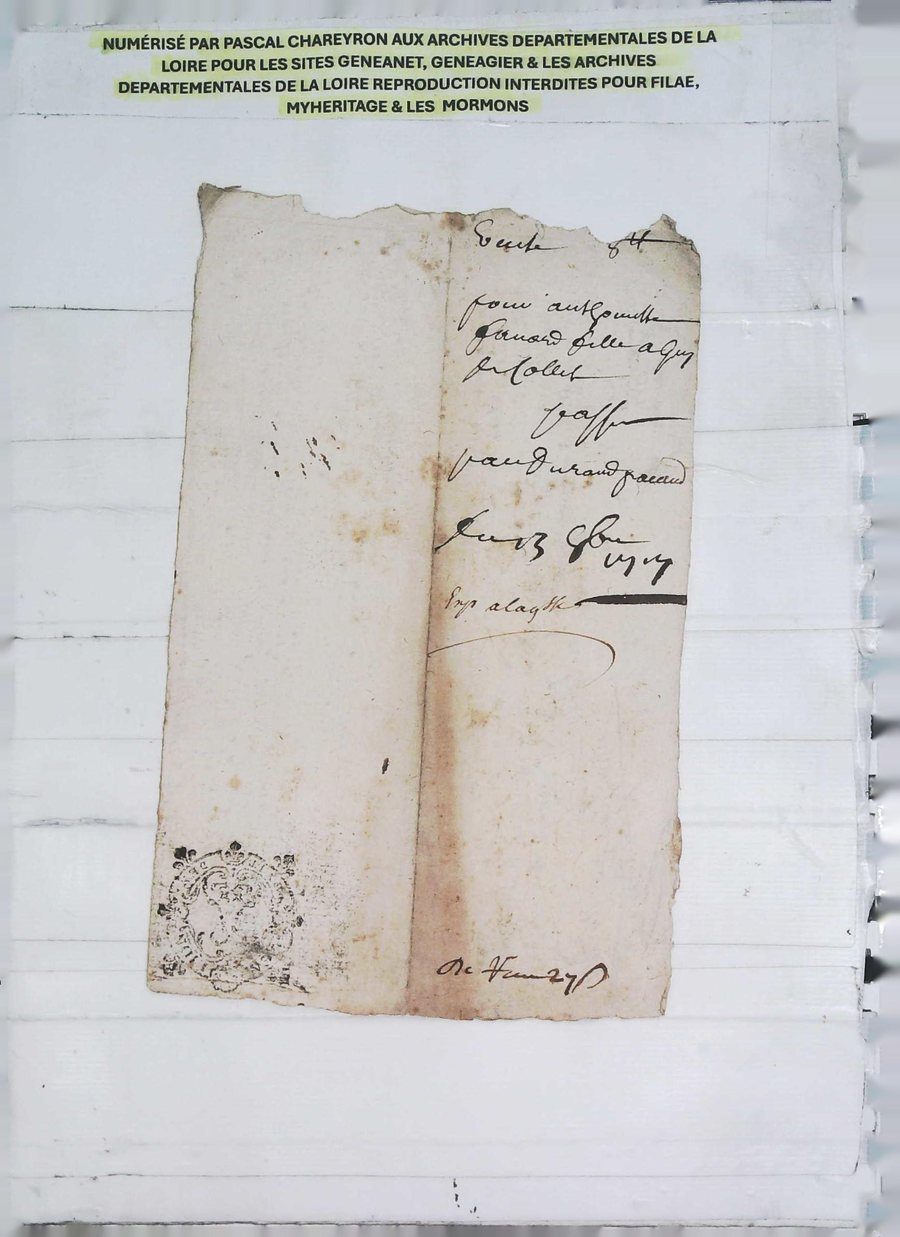 NUMÉRISÉ PAR PASCAL CHAREYRON AUX ARCHIVES DEPARTEMENTALES DE LA
LOIRE POUR LES SITES GENEANET, GENEAGIER & LES ARCHIVES
DEPARTEMENTALES DE LA LOIRE REPRODUCTION INTERDITES POUR FILAE,
MYHERITAGE & LES MORMONS
Vente
pour anthoinette
fille a Guy
de Collet
passe
par Durand
du 13 9bre
1717
Exp a lad